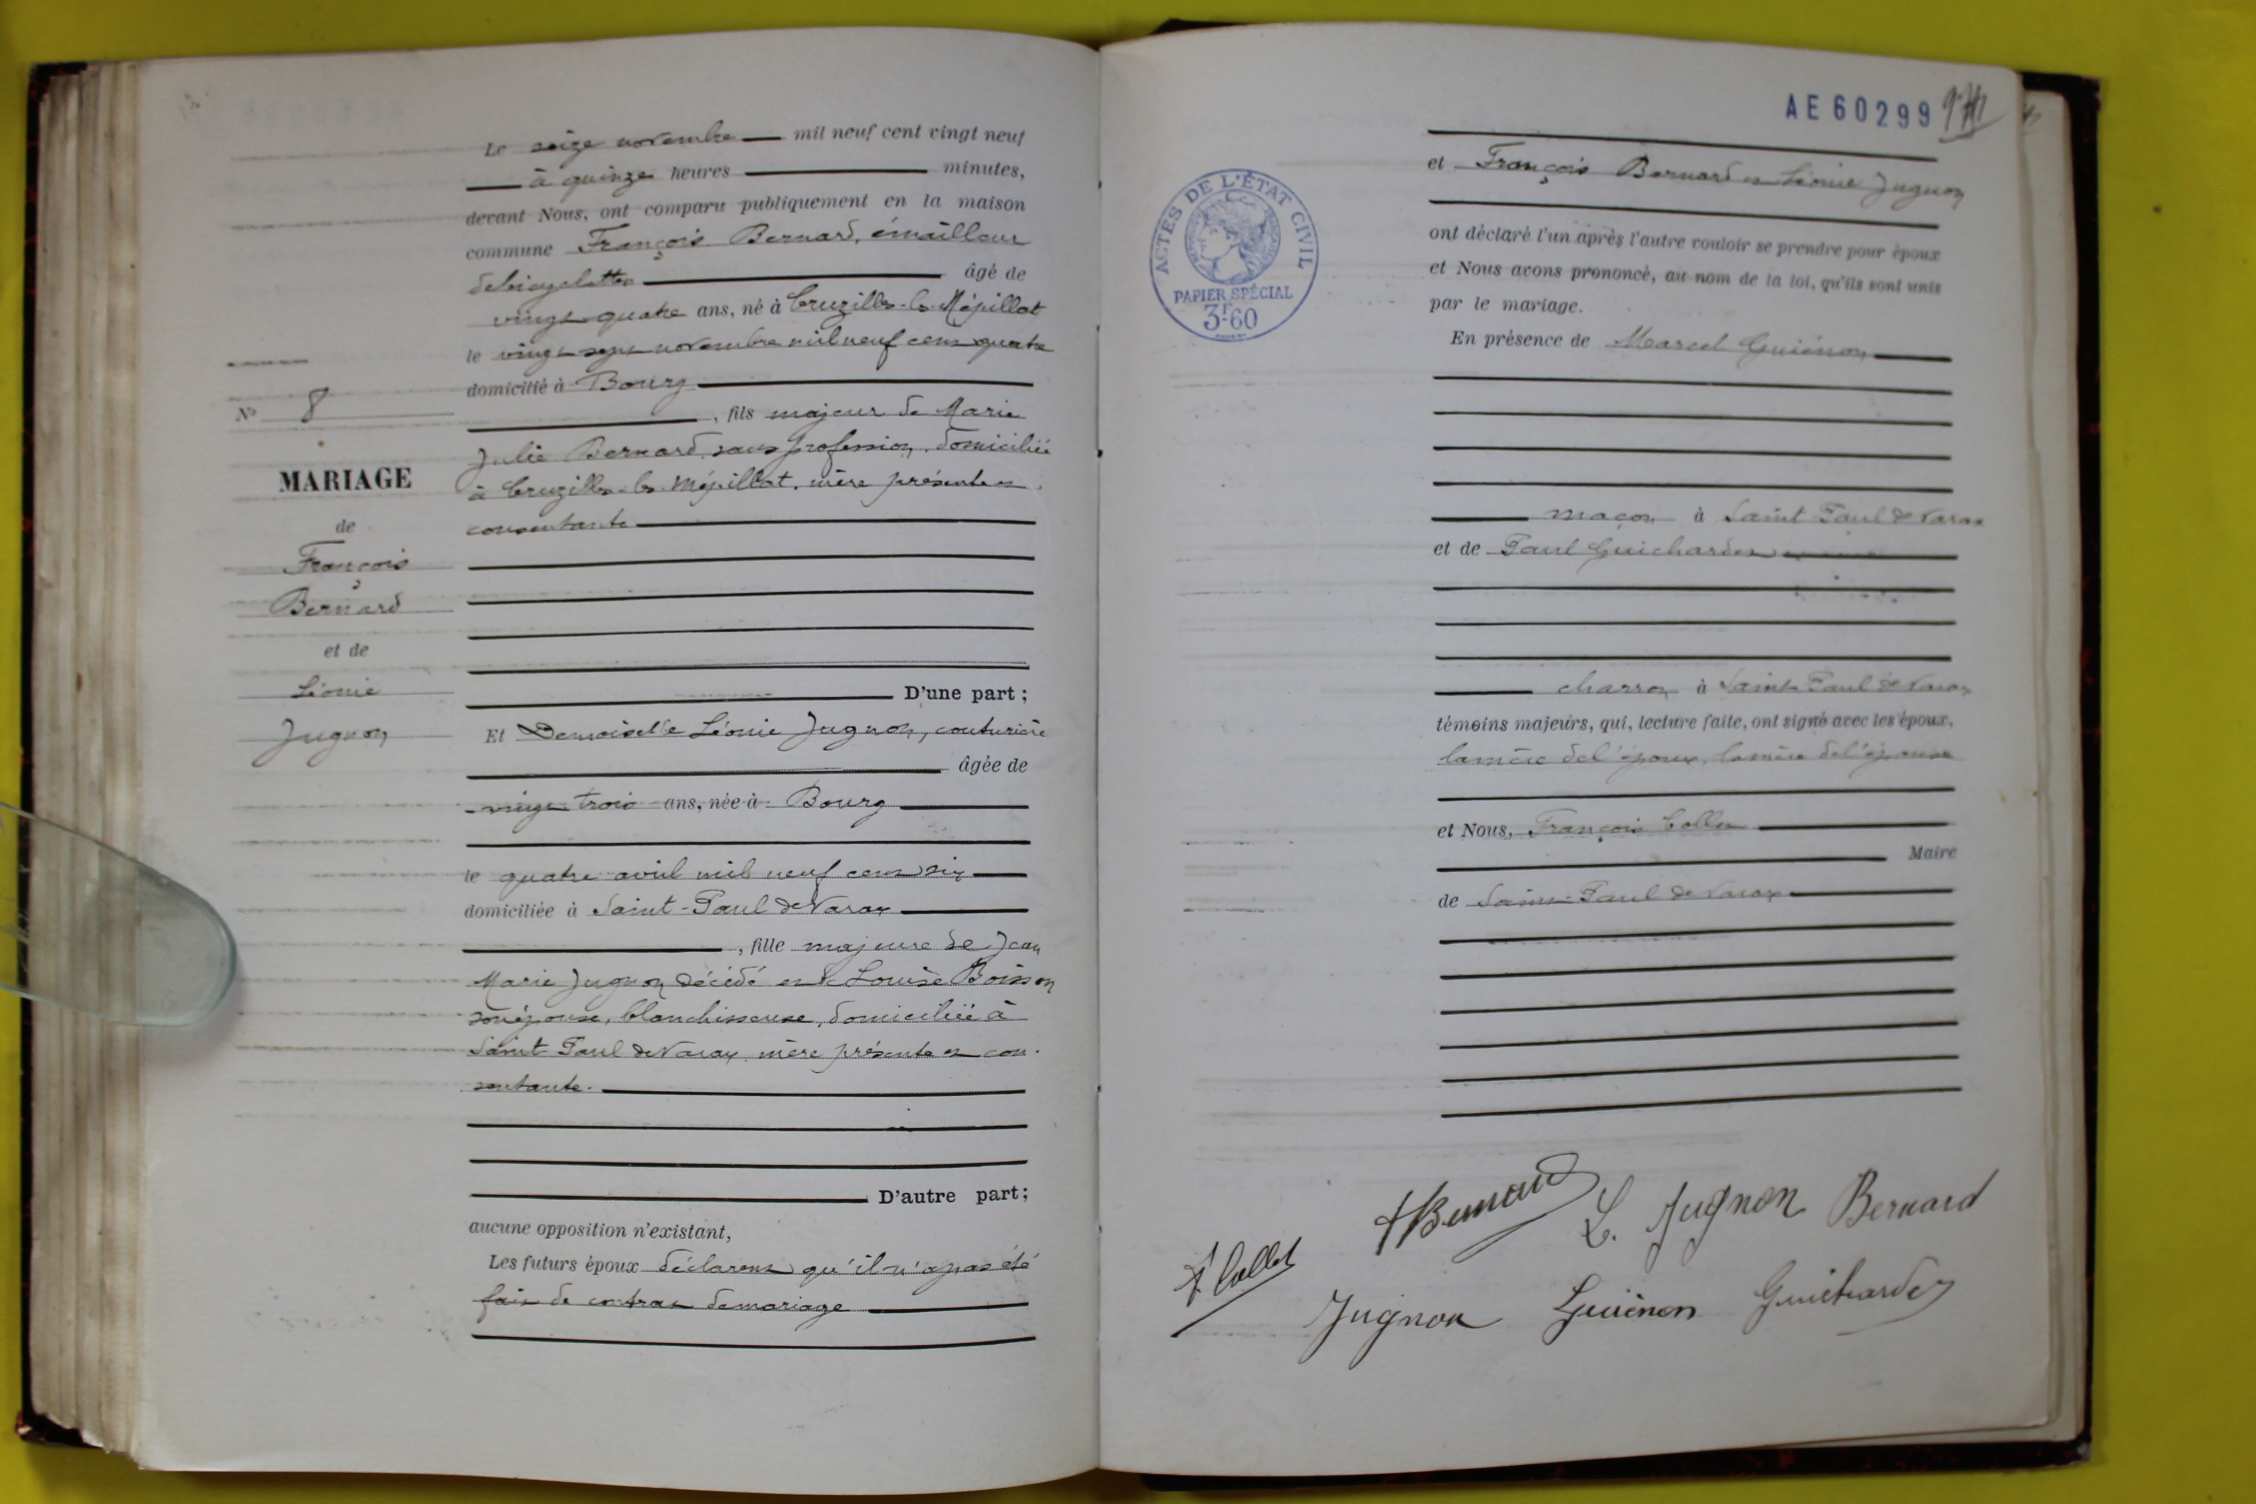 Le seize novembre mil neuf cent vingt neuf
à quinze heures minutes,
devant Nous, ont comparu publiquement en la maison
commune François Bernard, émailleur
de bicyclettes âgé de
vingt quatre ans, né à Cruzilles-les-Mépillat
le vingt sept novembre mil neuf cent quatre
domicilié à Bourg
, fils majeur de Marie
Julie Bernard, sans profession, domiciliée
à Cruzilles-les-Mépillat, mère présente et
consentante
D'une part ;
Et Demoiselle Léonie Jugnon, couturière
âgée de
vingt trois ans, née à Bourg
le quatre avril mil neuf cent six
domiciliée à Saint-Paul de Varax
, fille majeure de Jean
Marie Jugnon décédé et de Louise Boisson
son épouse, blanchisseuse, domiciliée à
Saint Paul de Varax, mère présente et con-
sentante.
D'autre part ;
aucune opposition n'existant,
Les futurs époux déclarent qu'il n'a pas été
fait de contrat de mariage
No 8
MARIAGE
de
François
Bernard
et de
Léonie
Jugnon
AE 60299
ACTES DE L'ÉTAT CIVIL
PAPIER SPÉCIAL
3F60
et François Bernard et Léonie Jugnon
ont déclaré l'un après l'autre vouloir se prendre pour époux
et Nous avons prononcé, au nom de la loi, qu'ils sont unis
par le mariage.
En présence de Marcel Guiénon
maçon à Saint Paul de Varax
et de Paul Guichardon
charron à Saint Paul de Varax
témoins majeurs, qui, lecture faite, ont signé avec les époux,
la mère de l'époux, la mère de l'épouse
et Nous, François Collet
Maire
de Saint-Paul de Varax
F Bernard L. Jugnon Bernard
F Collet
Jugnon Guiénon Guichardon